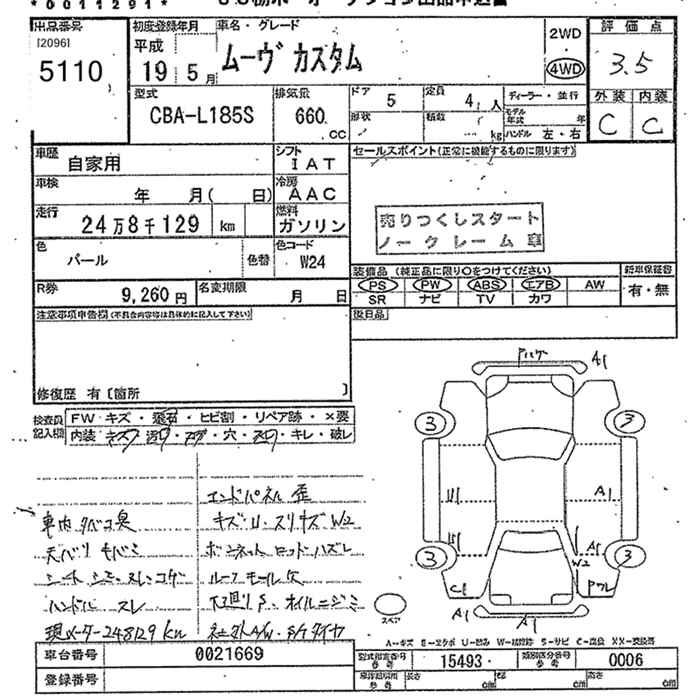 *0011291*
出品番号
[2096]
5110
初度登録年月
平成
19年5月
車名・グレード
ムーヴ カスタム
2WD
4WD
評価点
3.5
外装 内装
C C
型式
CBA-L185S
排気量
660.
CC
ドア 5
定員 4人
ディーラー・並行
形状
積数
kg
モデル年式 年
ハンドル 左・右
車歴
自家用
シフト
IAT
セールスポイント(正常に機能するものに限ります)
車検
年 月( 日)
冷房
AAC
走行
24万8千129 km
燃料
ガソリン
売りつくしスタート
ノークレーム車
色
パール
色替
色コード
W24
装備品 (純正品に限り○をつけてください)
新車保証書
PS PW ABS エアB AW
有・無
SR ナビ TV カワ
R券
9,260円
名変期限
月 日
注意事項申告欄(不具合内容等は具体的に記入して下さい)
後日品
修復歴 有〔箇所 〕
検査員記入欄
FW キズ・飛石・ヒビ割・リペア跡・×要
内装 キズ・汚れ・コゲ・穴・スレ・キレ・破レ
エンドパネル 歪
車内 タバコ臭
キズ・U・スリキズ W2
天バリ モバミ
ボンネット ロッド ハズレ
シート シミ・スレ・コゲ
ルーフモール欠
ハンドル スレ
下廻りS・オイルニジミ
現メーター248129km
社外A/W・S/Tタイヤ
A1
3 3
A1
A1
W2
3 3
C1
A1
A1
スペア
A－キズ E－エクボ U－凹み W－補修跡 S－サビ C－腐食 XX－交換済
車台番号
0021669
型式指定番号
参考
15493.
類別区分番号
参考
0006
登録番号
長さ cm
幅 cm
高さ cm